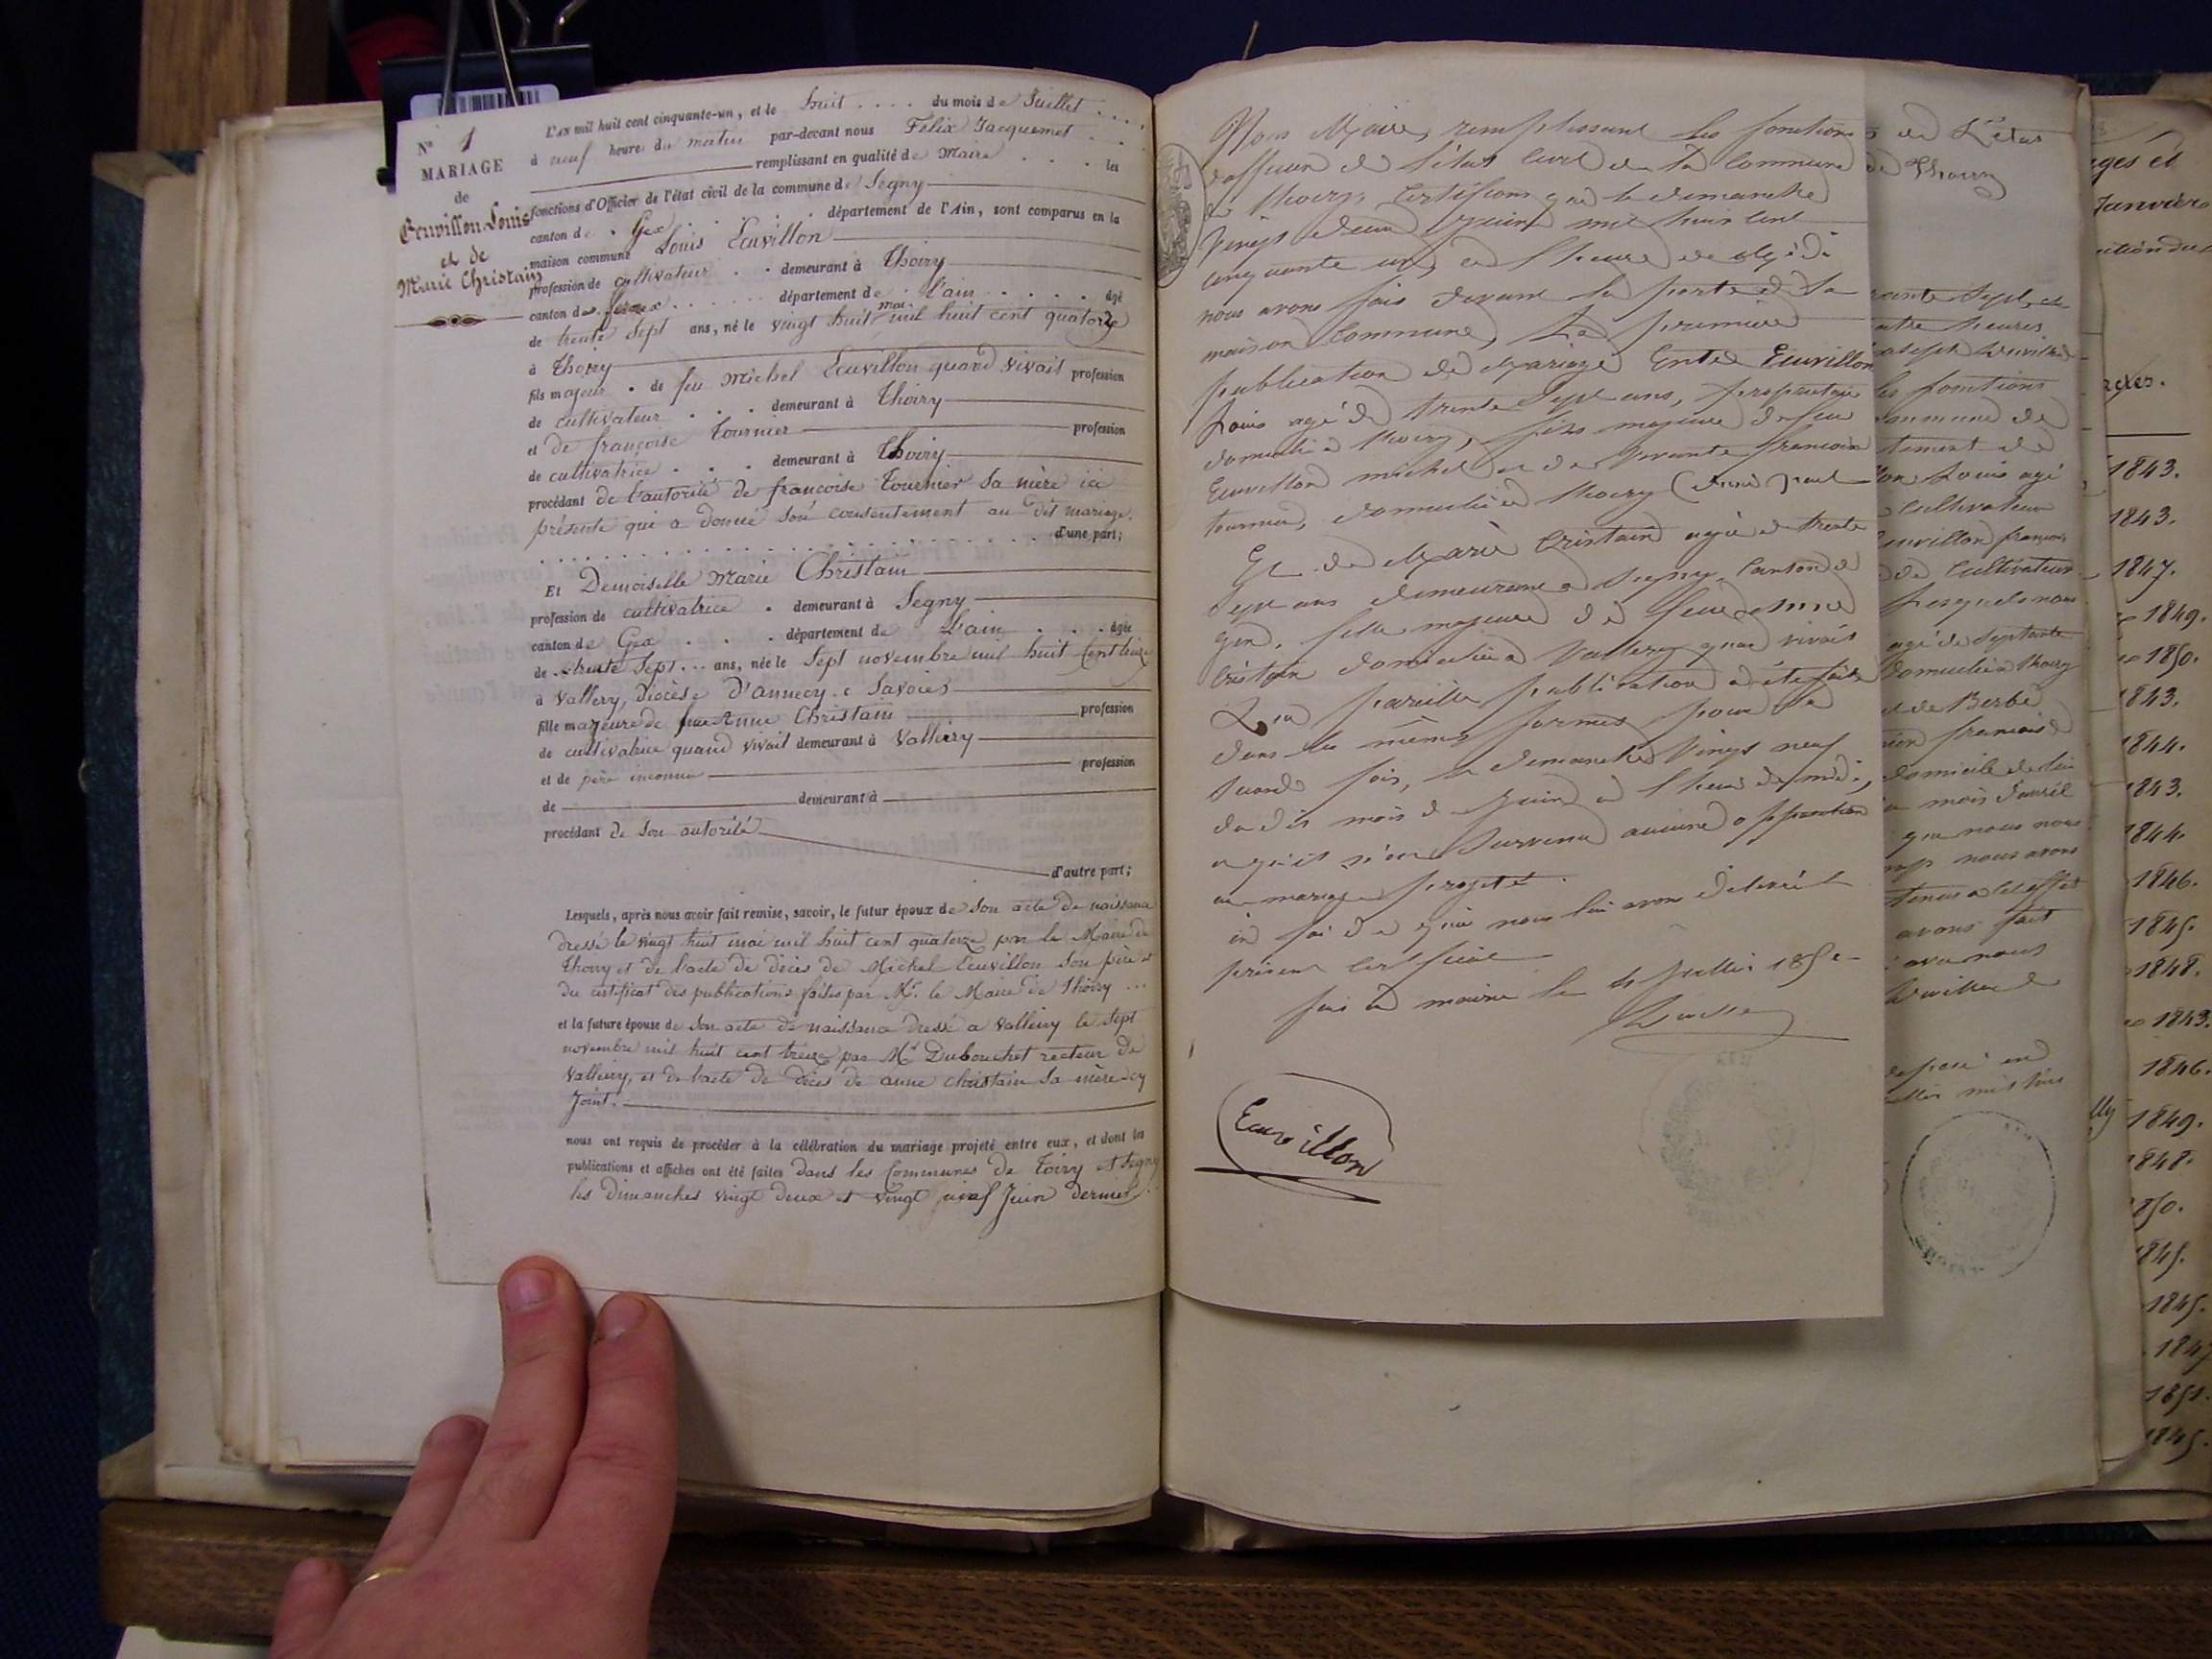 N° 1
MARIAGE
de
Ecuvillon Louis
et de
Marie Christain
L'AN mil huit cent cinquante-un, et le huit .... du mois de Juillet ....
à neuf heure du matin par-devant nous Félix Jacquemet . .
remplissant en qualité de Maire . . . . les
fonctions d'Officier de l'état civil de la commune de Segny
canton de . Gex . . . département de l'Ain, sont comparus en la
maison commune Louis Ecuvillon
profession de cultivateur . . demeurant à Thoiry
canton de ferney . . . . . département de l'ain . . . . . âgé
de trente sept ans, né le vingt huit mai mil huit cent quatorze
à Thoiry
fils majeur . de feu Michel Ecuvillon quand vivait profession
de cultivateur . . . demeurant à Thoiry
et de françoise Tournier profession
de cultivatrice . . . demeurant à Thoiry
procédant de l'autorité de françoise Tournier sa mère ici
présente qui a donné son consentement au dit mariage.
d'une part;
Et Demoiselle Marie Christain
profession de cultivatrice . demeurant à Segny
canton de Gex . . . . département de L'ain . . . . âgée
de trente sept ... ans, née le sept novembre mil huit cent treize
à Vallery, Diocèse D'annecy . Savoie
fille majeure de feue Anne Christain profession
de cultivatrice quand vivait demeurant à Valleiry
et de père inconnu profession
de demeurant à
procédant de son autorité
d'autre part;
Lesquels, après nous avoir fait remise, savoir, le futur époux de son acte de naissance
dressé le vingt huit mai mil huit cent quatorze par le Maire de
Thoiry et de l'acte de décès de Michel Ecuvillon son père et
du certificat des publications faites par Mr. le Maire de Thoiry ...
et la future épouse de son acte de naissance dressé a Valleiry le sept
novembre mil huit cent treize par Mr Dubouchet recteur de
Valleiry, et de l'acte de décès de anne christain sa mère cy
joint.
nous ont requis de procéder à la célébration du mariage projeté entre eux, et dont les
publications et affiches ont été faites dans les Communes de Toiry et Segny
les Dimanches vingt deux et vingt neuf Juin dernier.
Nous Maire, remplissant les fonctions
d'officier de l'état civil de la commune
de Thoiry, Certifions que le dimanche
vingt deux Juin mil huit cent
cinquante un, à l'heure de Midi
nous avons fait devant la porte de la
maison commune, La première
publication de Mariage Entre Ecuvillon
Louis agé de trente sept ans, propriétaire
domicilié à Thoiry, fils majeur de feu
Ecuvillon michel et de vivante francoise
tournier, domiciliée à Thoiry d'une part
Et de Marie Cristain agée de trente
sept ans demeurant à Segny, Canton de
gex, fille majeure de feue anne
Cristain domiciliée à Valleiry quand vivait
La pareille publication a été faite
dans les mêmes formes pour la
seconde fois, le dimanche vingt neuf
du dit mois de Juin à l'heure de midi,
et qu'il n'est survenu aucune opposition
au mariage projeté.
en foi de quoi nous lui avons délivré le
présent certificat
fait en mairie le 4 Juillet 1851
Ecuvillon
en L'état
de Thoiry
heures
les fonctions
commune de
Louis agé
Cultivateur
Ecuvillon francois
de Cultivateur
Lesquels nous
agé de septante
domicilié à Thoiry
et de Berbe
francoise
domicile de
mois d'avril
que nous nous
nous avons
avons fait
déposé
ages et
Janvier
actes.
1843.
1843.
1847.
1849.
1850.
1843.
1844.
1843.
1844.
1846.
1845.
1848.
1843.
1846.
1849.
1848.
1850.
1845.
1845.
1847
1851.
1845.